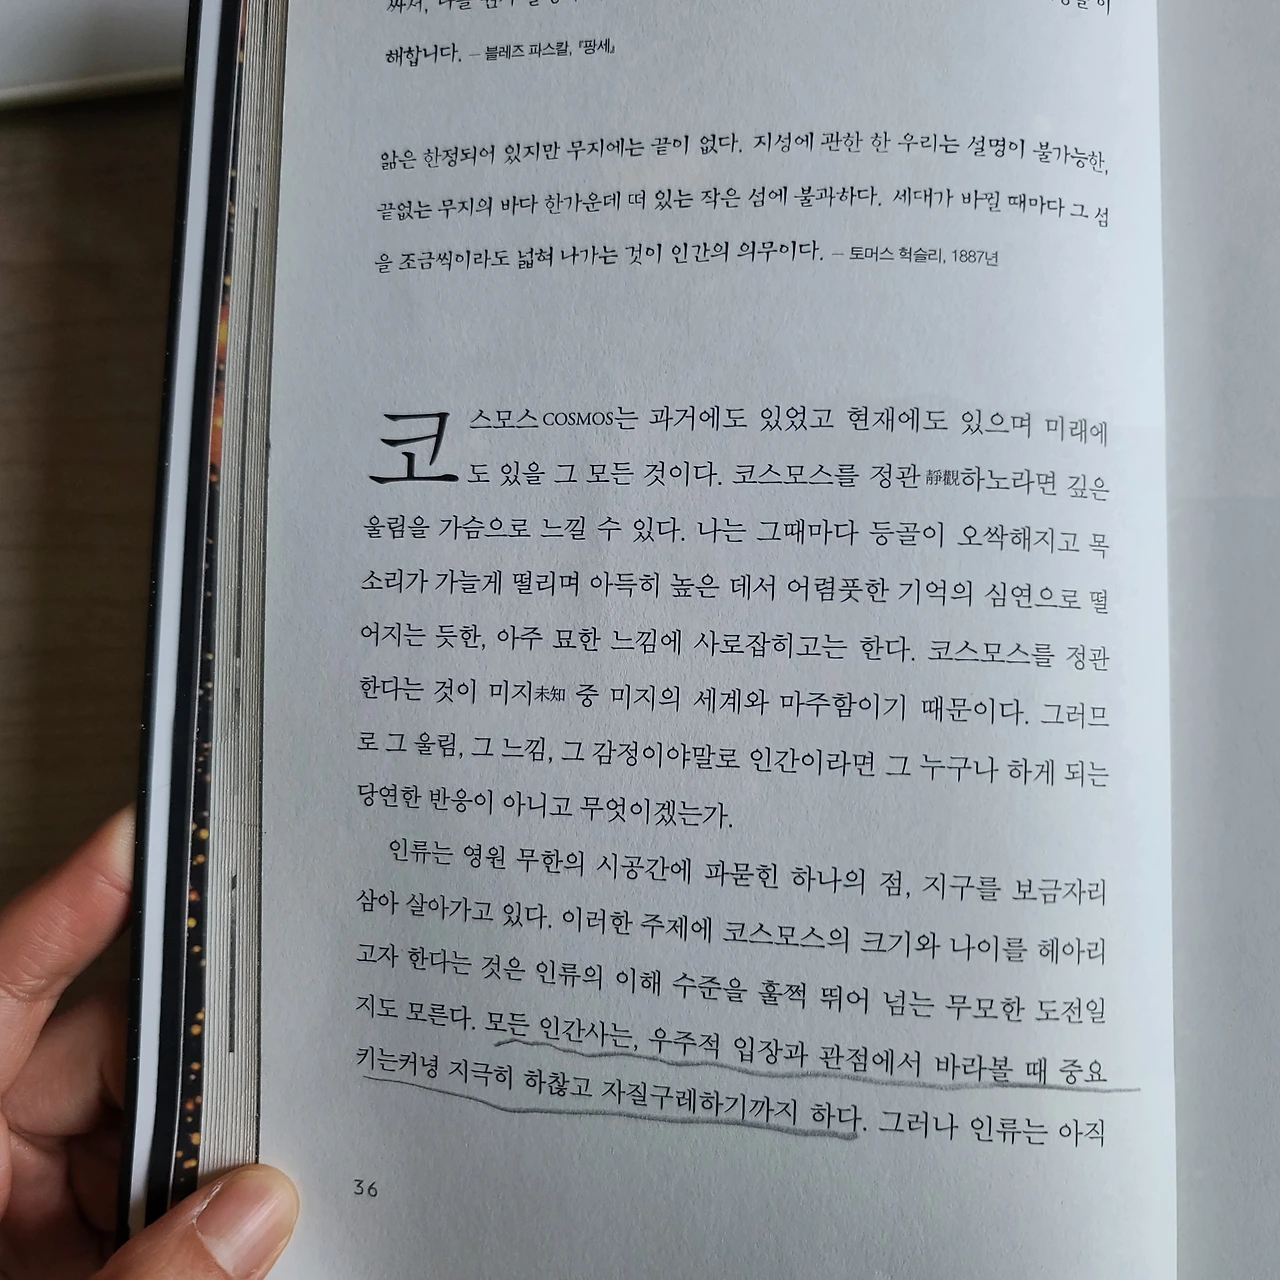 해합니다. — 블레즈 파스칼, 『팡세』
앎은 한정되어 있지만 무지에는 끝이 없다. 지성에 관한 한 우리는 설명이 불가능한,
끝없는 무지의 바다 한가운데 떠 있는 작은 섬에 불과하다. 세대가 바뀔 때마다 그 섬
을 조금씩이라도 넓혀 나가는 것이 인간의 의무이다. — 토머스 헉슬리, 1887년
코스모스COSMOS는 과거에도 있었고 현재에도 있으며 미래에
도 있을 그 모든 것이다. 코스모스를 정관靜觀하노라면 깊은
울림을 가슴으로 느낄 수 있다. 나는 그때마다 등골이 오싹해지고 목
소리가 가늘게 떨리며 아득히 높은 데서 어렴풋한 기억의 심연으로 떨
어지는 듯한, 아주 묘한 느낌에 사로잡히고는 한다. 코스모스를 정관
한다는 것이 미지未知 중 미지의 세계와 마주함이기 때문이다. 그러므
로 그 울림, 그 느낌, 그 감정이야말로 인간이라면 그 누구나 하게 되는
당연한 반응이 아니고 무엇이겠는가.
인류는 영원 무한의 시공간에 파묻힌 하나의 점, 지구를 보금자리
삼아 살아가고 있다. 이러한 주제에 코스모스의 크기와 나이를 헤아리
고자 한다는 것은 인류의 이해 수준을 훌쩍 뛰어 넘는 무모한 도전일
지도 모른다. 모든 인간사는, 우주적 입장과 관점에서 바라볼 때 중요
키는커녕 지극히 하찮고 자질구레하기까지 하다. 그러나 인류는 아직
36